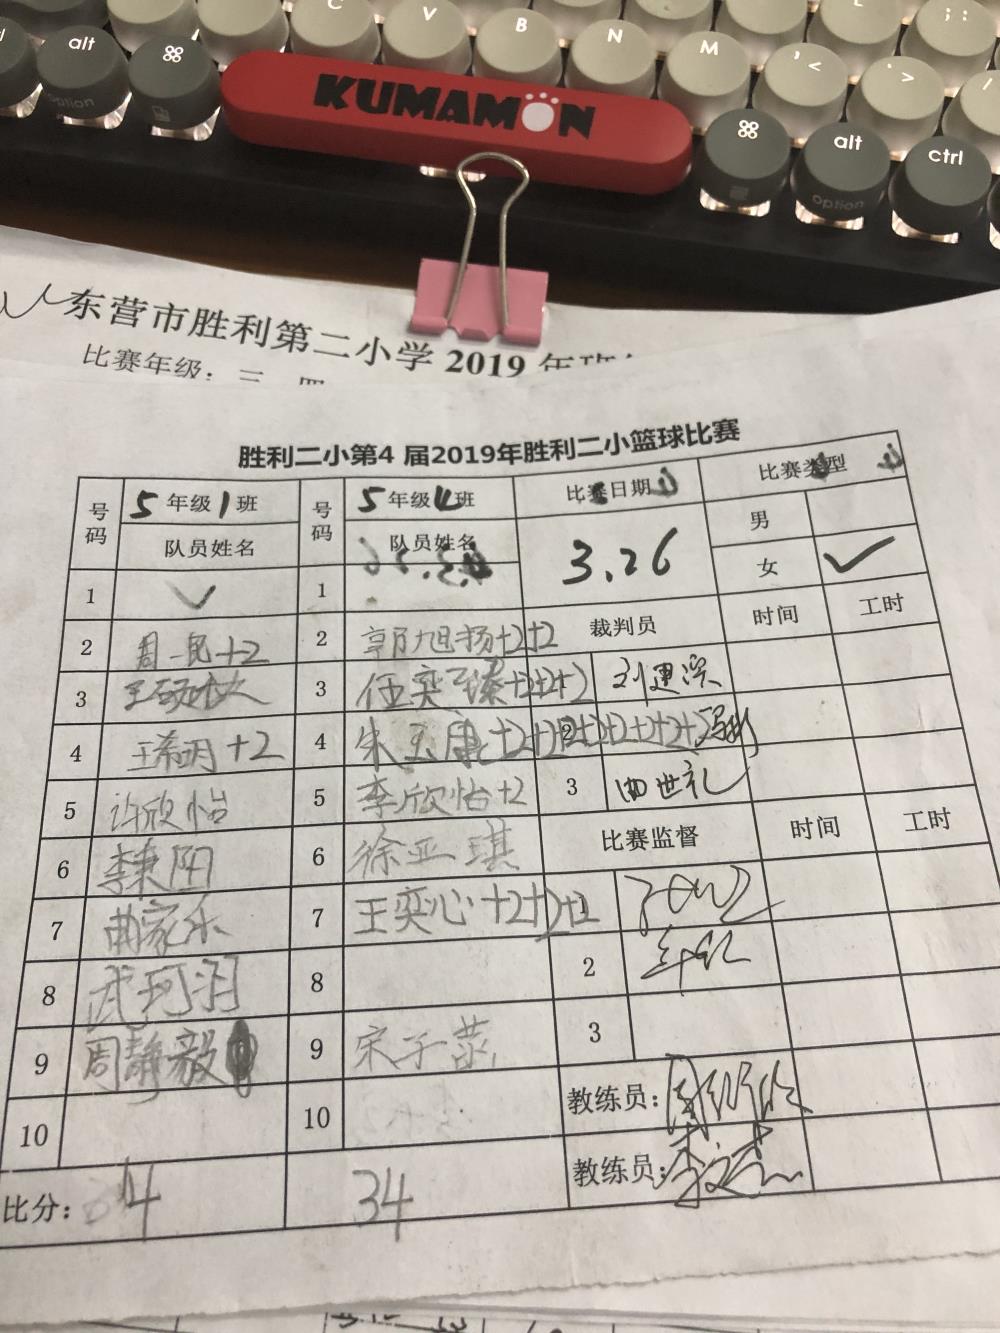 C V B N M , < . > L ; : /
alt option ⌘ ⌘ alt option ctrl
KUMAMON
东营市胜利第二小学 2019 年班
比赛年级：三 四
胜利二小第4 届2019年胜利二小篮球比赛
号码 5 年级 1 班 号码 5 年级 4 班 比赛日期 比赛类型
队员姓名 队员姓名 3.26 男
女 ✓
1 ✓ 1
裁判员 时间 工时
2 周 民+2 2 郭旭扬+2+2
3 3 伍奕臻+2+2+2
4 王希玥 +2 4 朱玉康+2+2+2+2+2+2+2 2
5 许欣怡 5 李欣怡+2 3 世礼
6 李秉阳 6 徐亚琪 比赛监督 时间 工时
7 曲家乐 7 王奕心 +2+2+2 1
8 武珂羽 8 2
9 周静毅 9 宋子 3
10 10 教练员：
教练员：
比分： 4 34